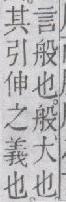 言般也。般大也
其引伸之義也。